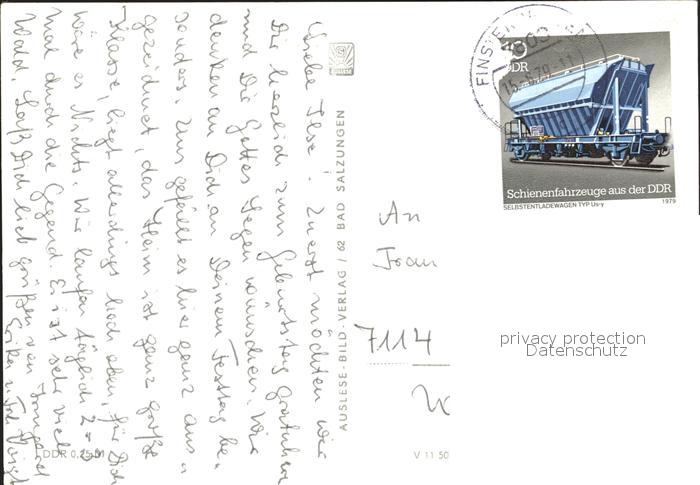 Liebe Ilse! Zuerst möchten wir
Dir herzlich zum Geburtstag gratulieren
und Dir Gottes Segen wünschen. Wir
denken an Dich, an Deinem Festtag be-
sonders. Uns gefällt es hier ganz aus-
gezeichnet, das Heim ist ganz große
Klasse, liegt allerdings hoch oben, für Dich
wäre es Nichts. Wir laufen täglich 2-3
mal durch die Gegend. Es ist sehr viel
Wald. Laß Dich lieb grüßen von Irmgard
Erika u.
AUSLESE-BILD-VERLAG / 62 BAD SALZUNGEN
DDR 0,25 M
V 11 50
An
Frau
7114
FINSTER
15.-6.79-11
DDR
Schienenfahrzeuge aus der DDR
SELBSTENTLADEWAGEN TYP Us-y
1979
privacy protection
Datenschutz